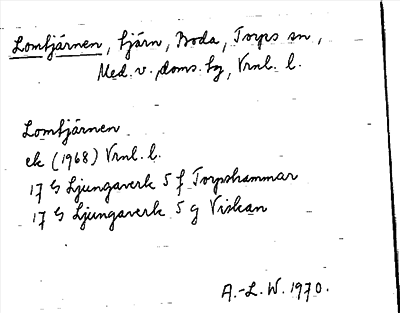 Lomtjärnen, tjärn, Boda, Torps sn,
Med. v. doms. hg, Vrnl. l.
Lomtjärnen
ek (1968) Vrnl. l.
17 G Ljungaverk 5 f Torpshammar
17 G Ljungaverk 5 g Viskan
A.-L. W. 1970.